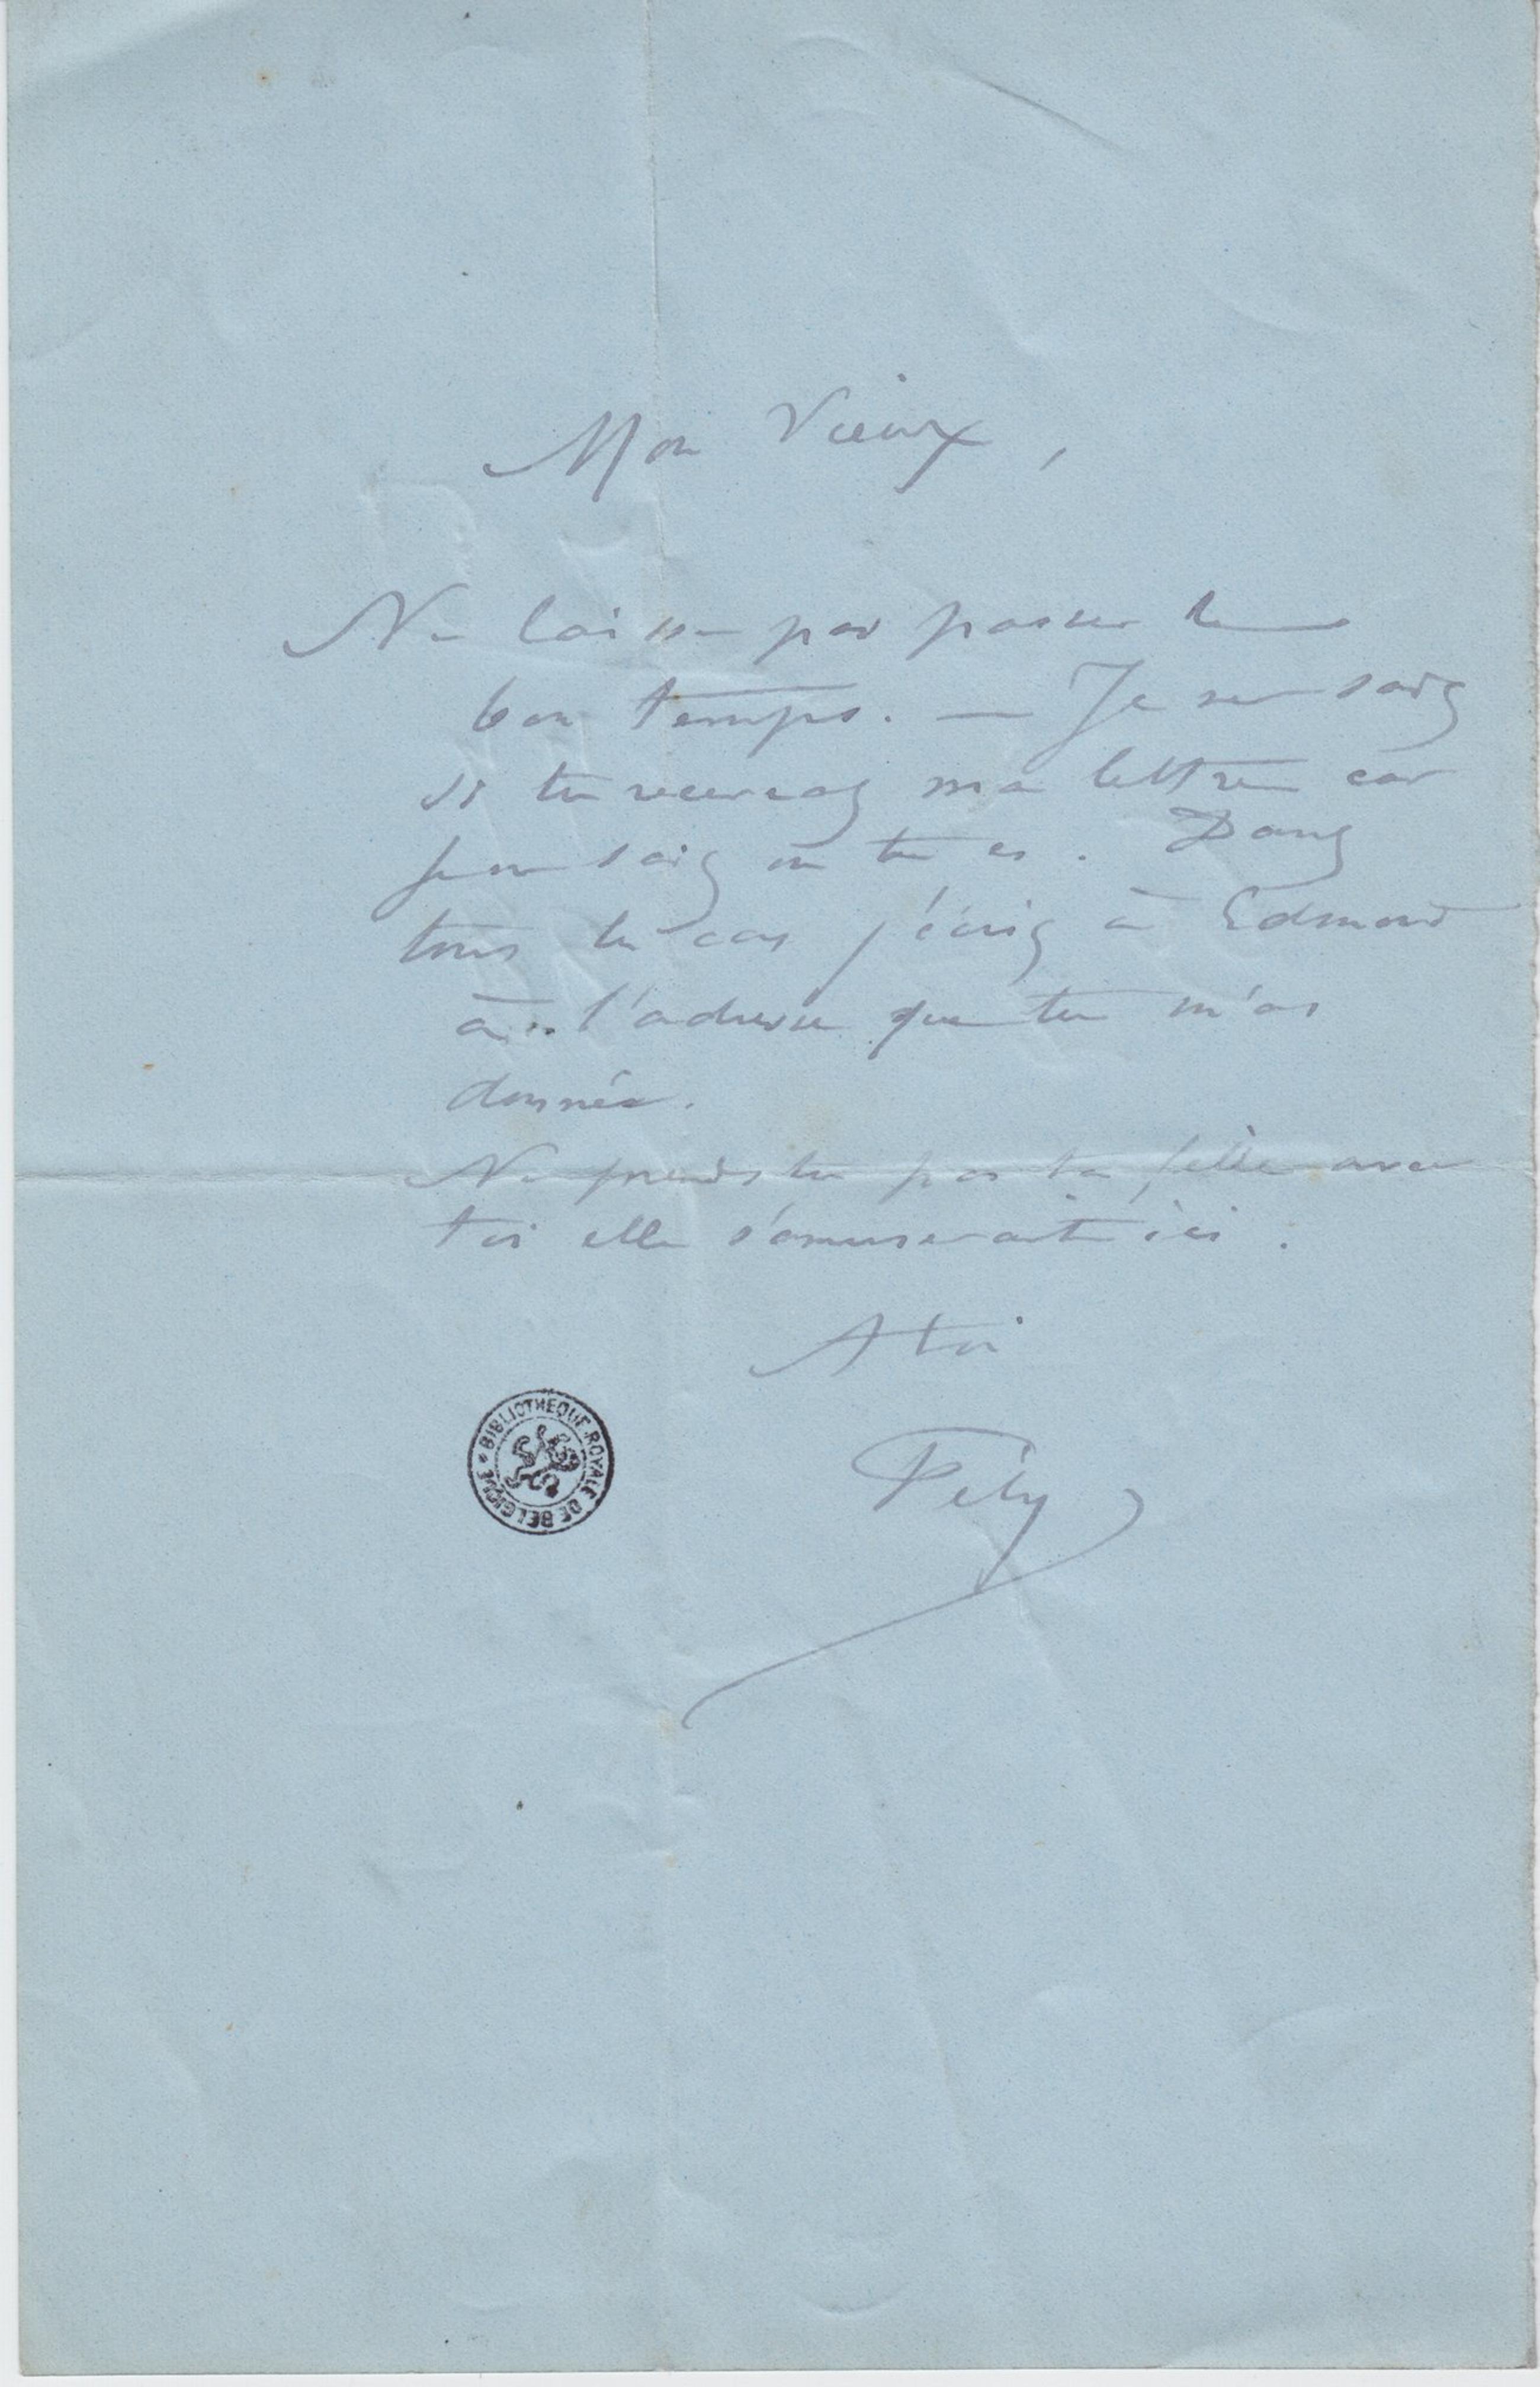 Mon Vieux,
Ne laisse pas passer le
bon temps. — Je ne sais
si tu recevras ma lettre car
je ne sais où tu es. Dans
tous les cas j'écris à Edmond
à l'adresse que tu m'as
donnée.
Ne prends tu pas ta fille avec
toi elle s'amuserait ici.
A toi
Fély
BIBLIOTHEQUE ROYALE DE BELGIQUE